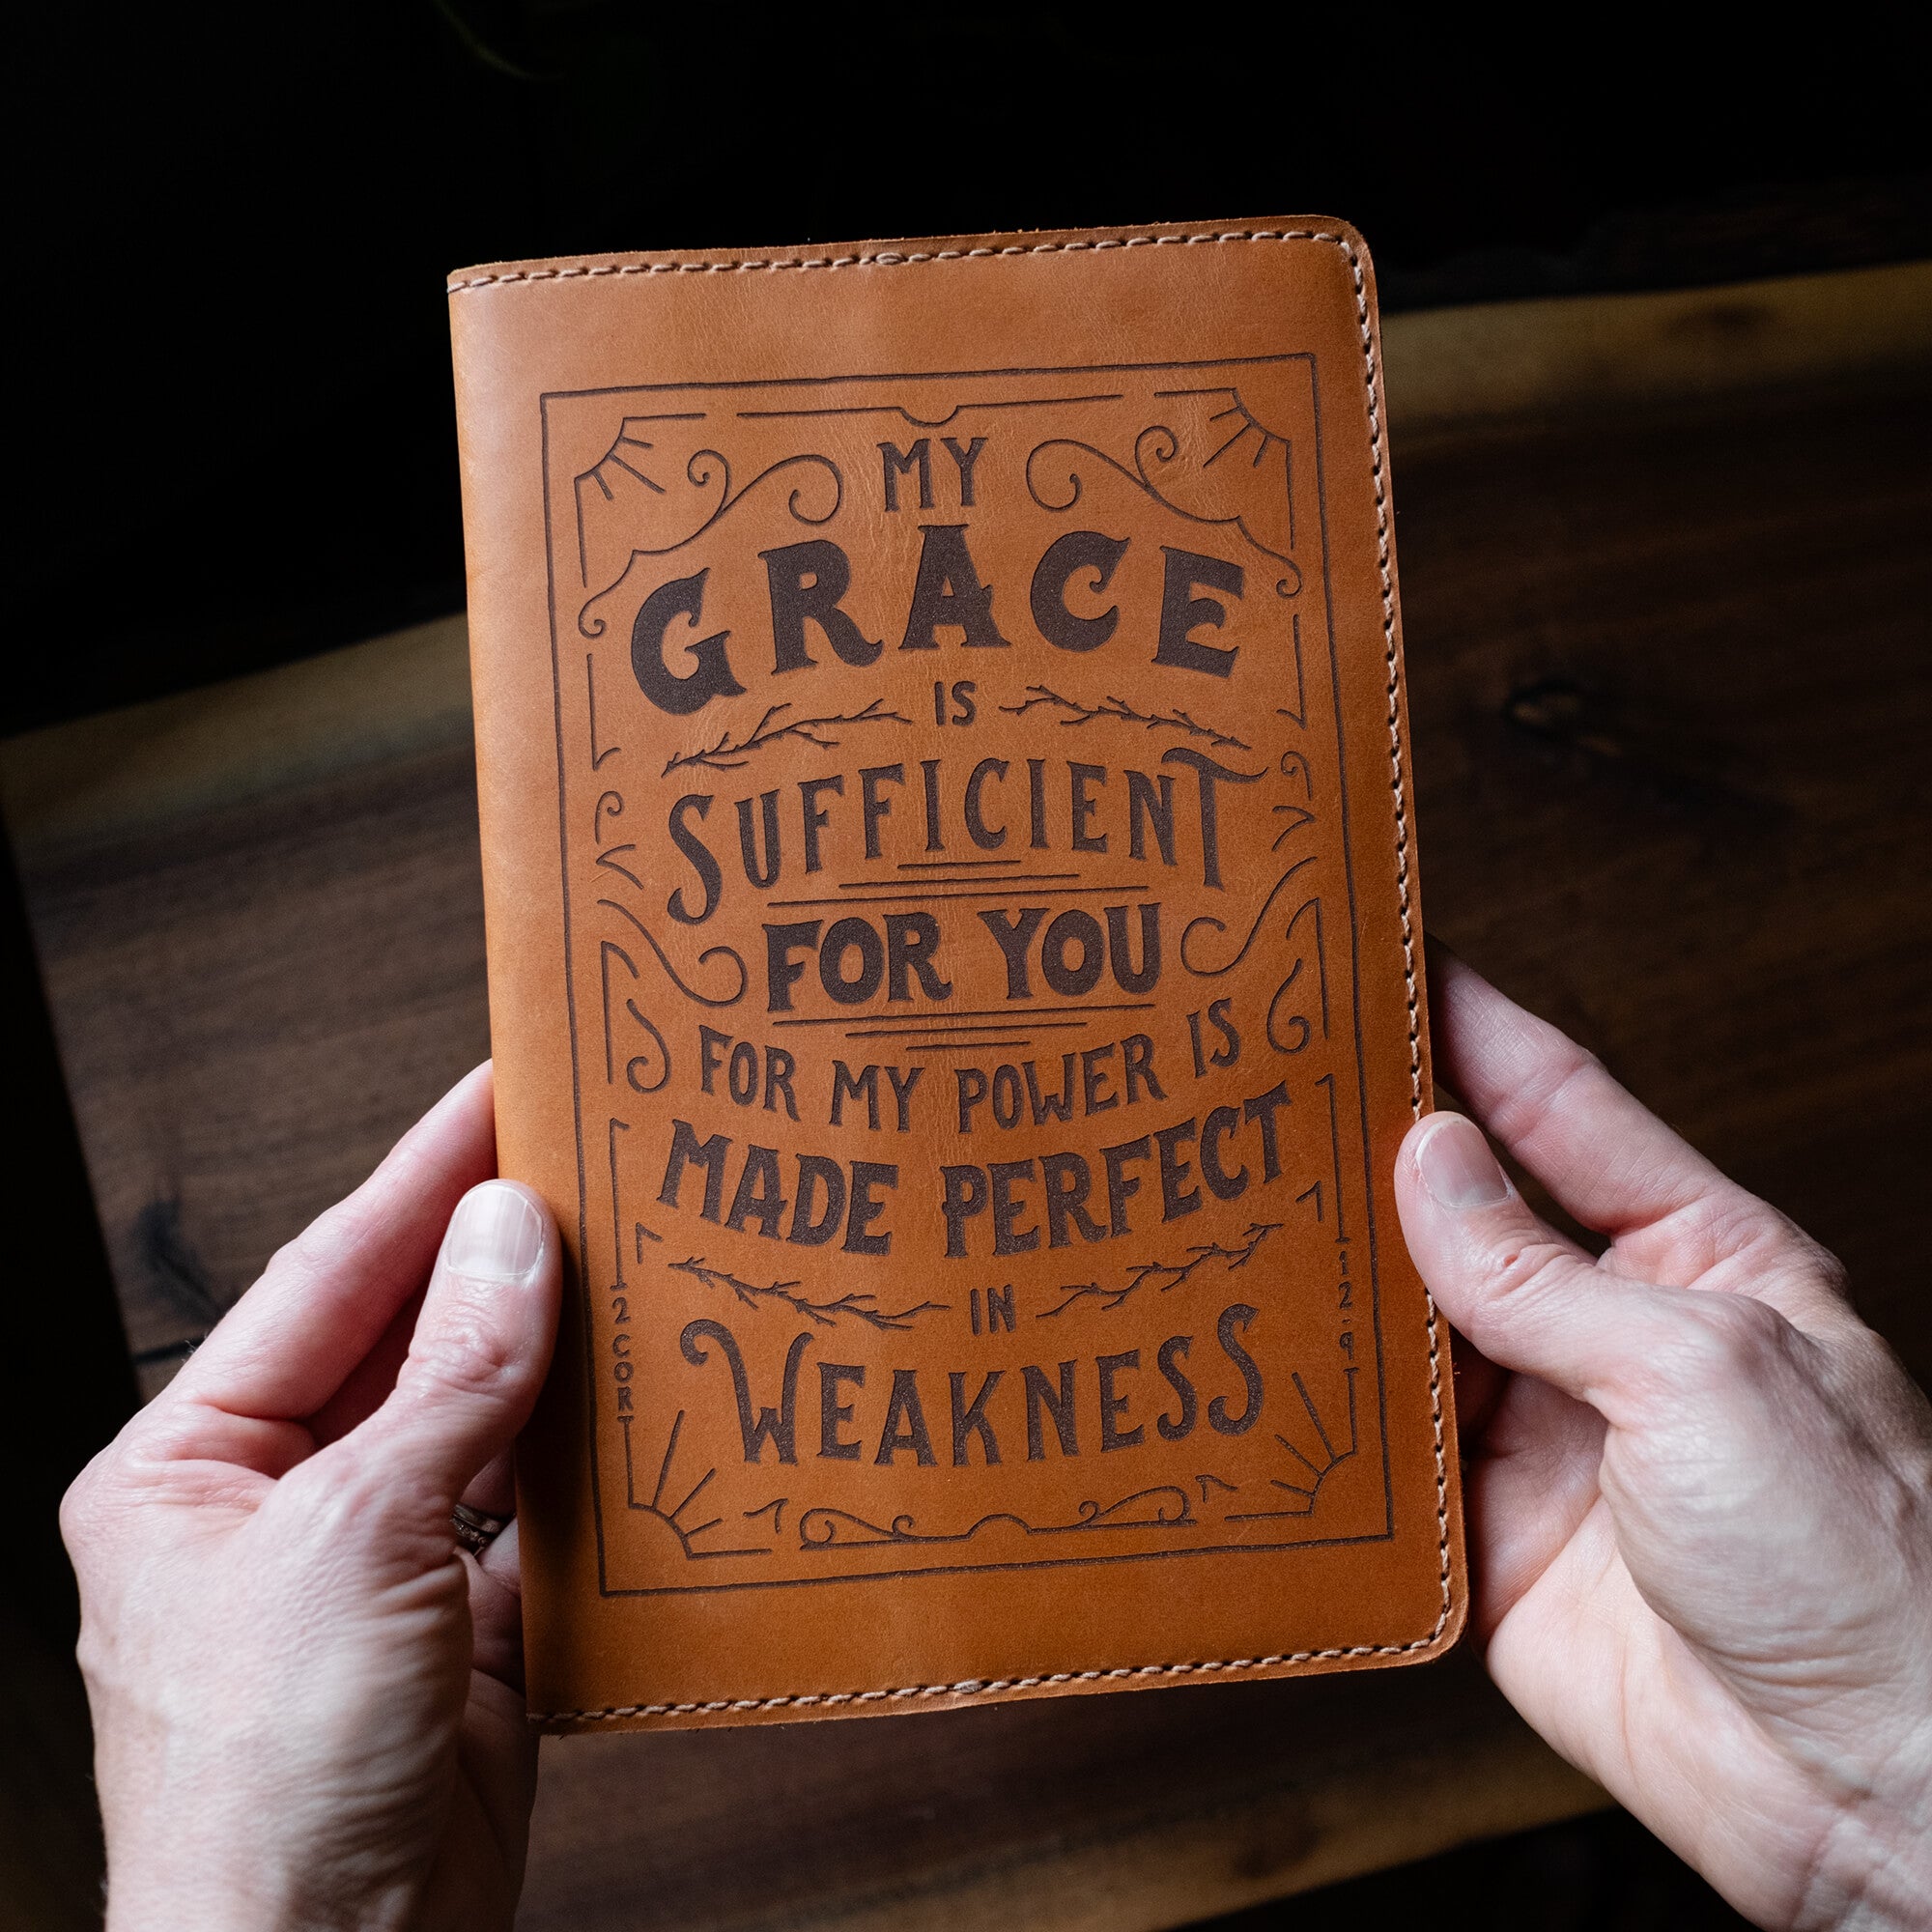 MY
GRACE
IS
SUFFICIENT
FOR YOU
FOR MY POWER IS
MADE PERFECT
IN
WEAKNESS
2 COR
12:9